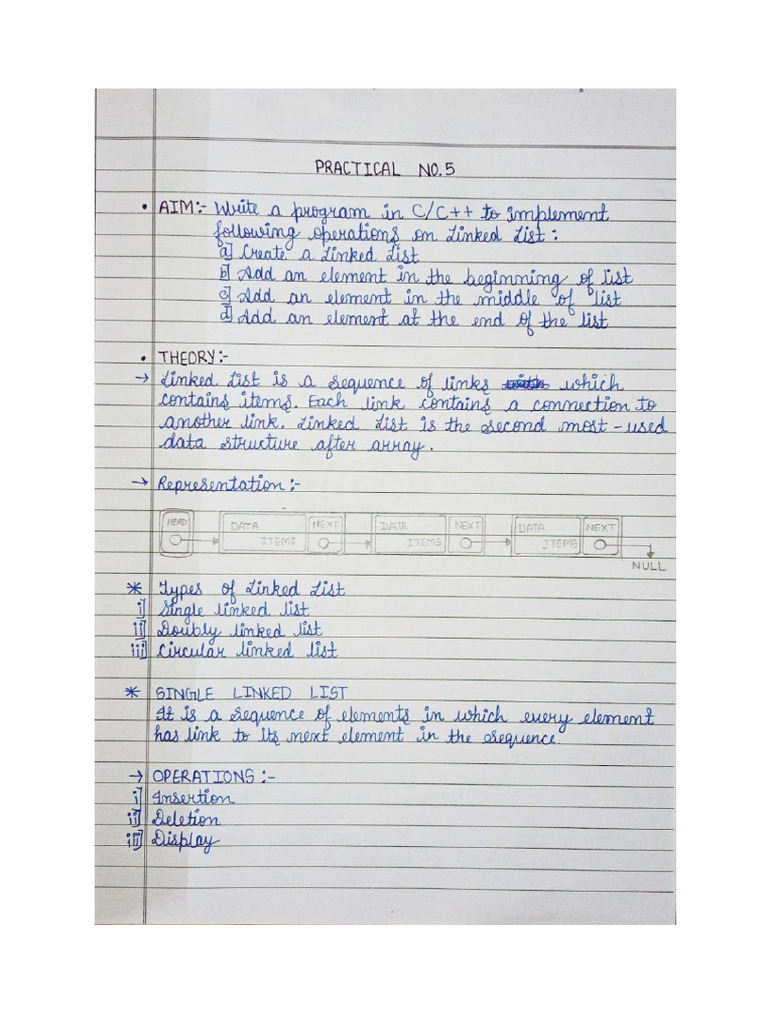 PRACTICAL NO.5
• AIM:- Write a program in C/C++ to implement
following operations on Linked List:
a] Create a Linked List
b] Add an element in the beginning of list
c] Add an element in the middle of list
d] Add an element at the end of the list
• THEORY:-
→ Linked List is a sequence of links which
contains items. Each link contains a connection to
another link. Linked List is the second most-used
data structure after array.
→ Representation:-
HEAD DATA NEXT DATA NEXT DATA NEXT
ITEMS ITEMS ITEMS
NULL
* Types of Linked List
i] Single linked list
ii] Doubly linked list
iii] Circular linked list
* SINGLE LINKED LIST
It is a sequence of elements in which every element
has link to its next element in the sequence.
→ OPERATIONS:-
i] Insertion
ii] Deletion
iii] Display